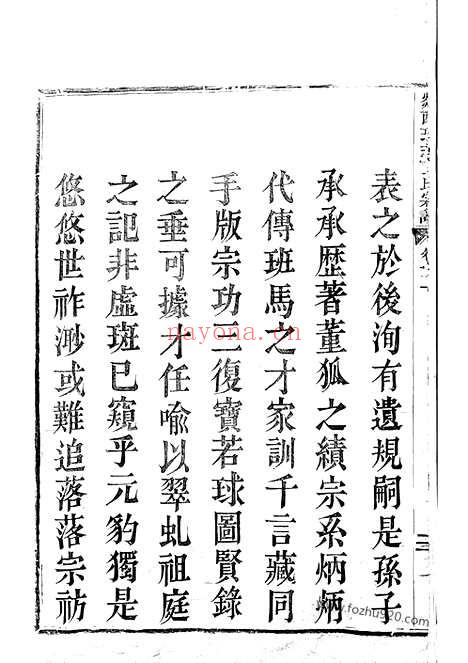 表之於後洵有遺規嗣是孫子
承承歷著董狐之績宗系炳炳
代傳班馬之才家訓千言藏同
手版宗功三復寶若球圖賢錄
之垂可據才任喻以翠虬祖庭
之記非虛斑已窺乎元豹獨是
悠悠世祚渺或難追落落宗祊
nayona.cn
www.fozhu920.com